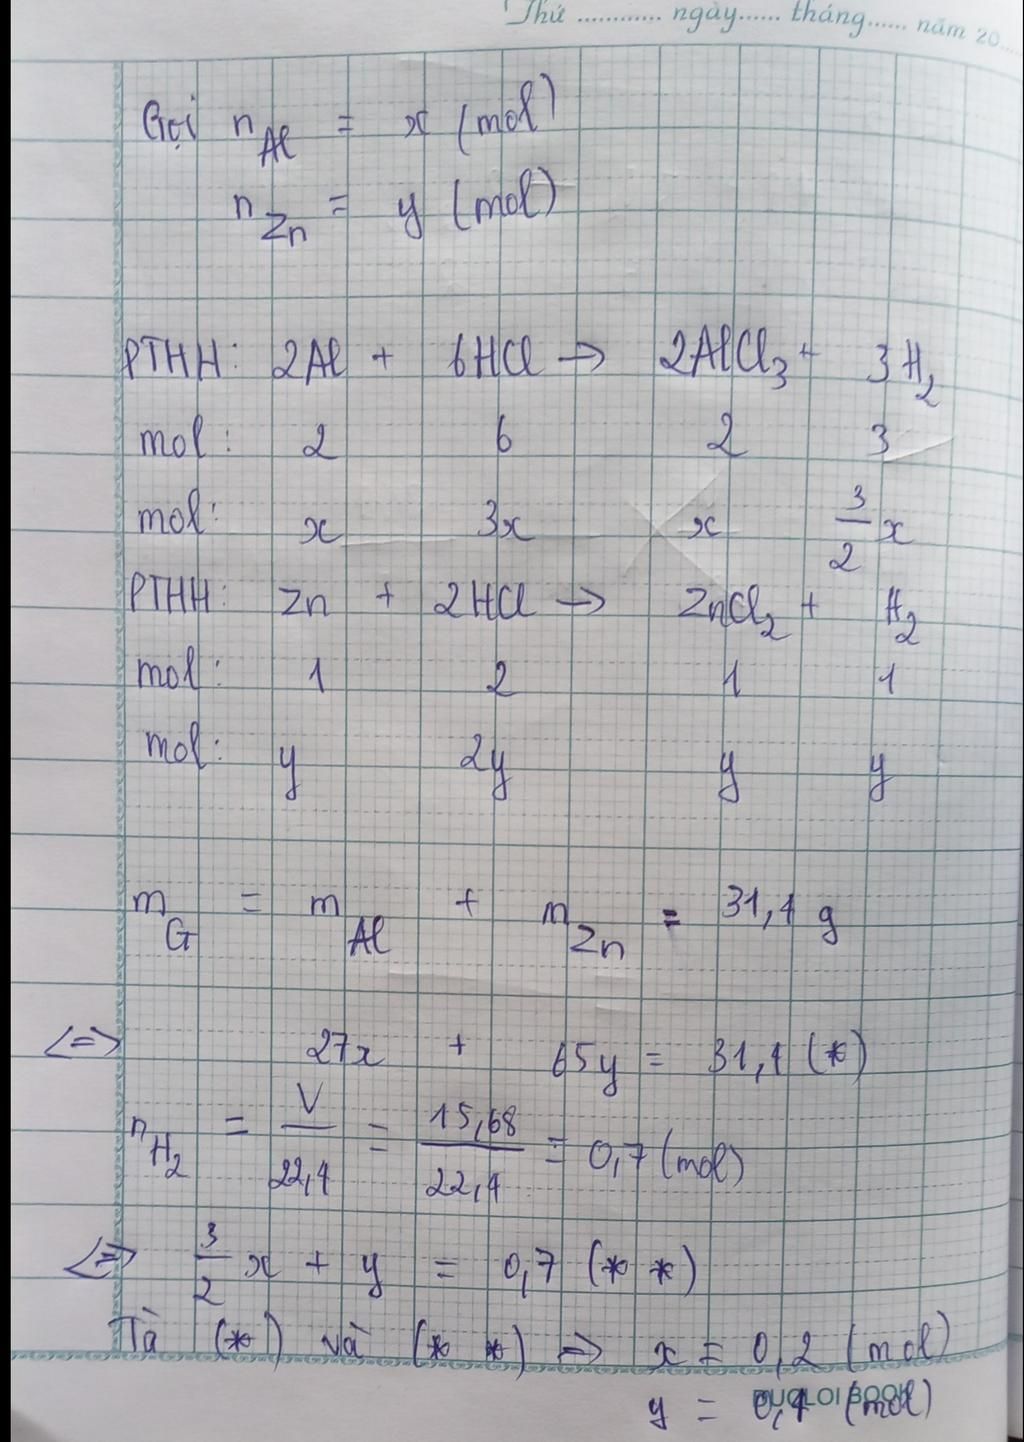 Thứ ............ ngày...... tháng...... năm 20....
Gọi n_Al = x (mol)
n_Zn = y (mol)
PTHH: 2Al + 6HCl → 2AlCl₃ + 3H₂
mol: 2 6 2 3
mol: x 3x x 3/2 x
PTHH: Zn + 2HCl → ZnCl₂ + H₂
mol: 1 2 1 1
mol: y 2y y y
m_G = m_Al + m_Zn = 31,4 g
<=> 27x + 65y = 31,4 (*)
n_H₂ = V/22,4 = 15,68/22,4 = 0,7 (mol)
<=> 3/2 x + y = 0,7 (* *)
Từ (*) và (* *) => x = 0,2 (mol)
y = 0,4 (mol)